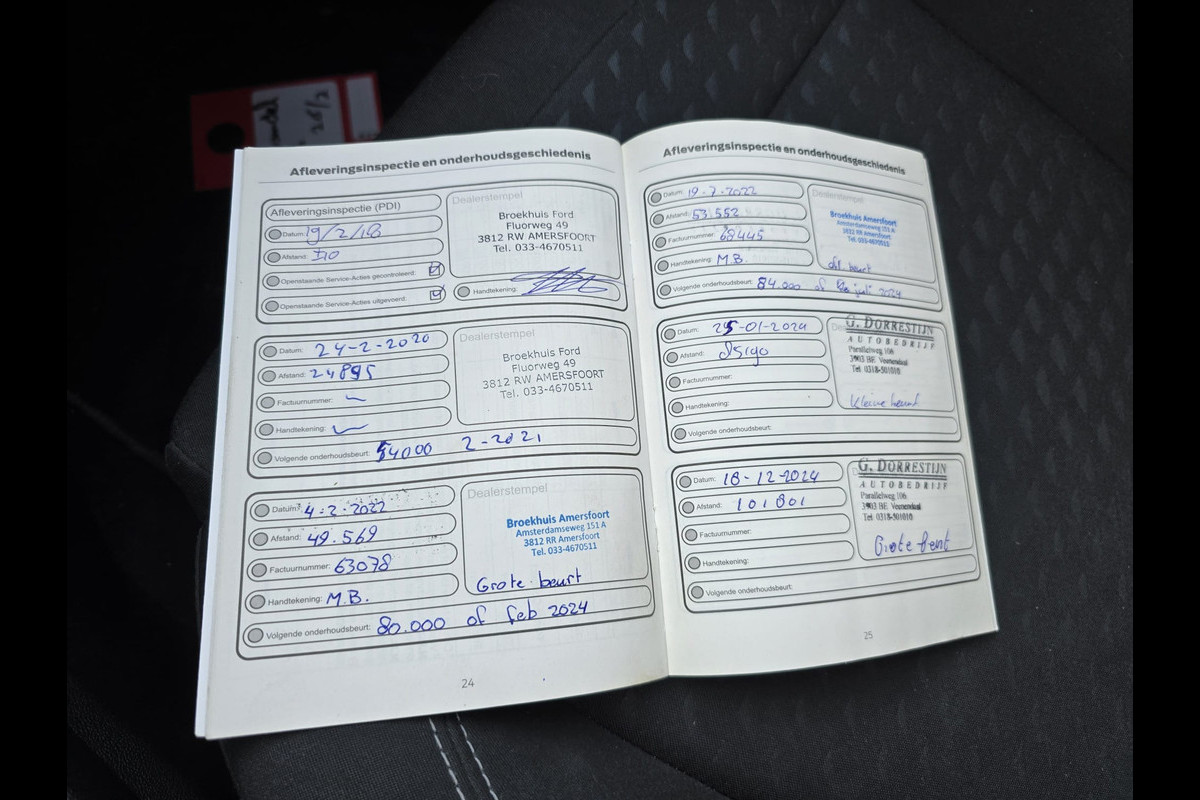 Afleveringsinspectie en onderhoudsgeschiedenis
Afleveringsinspectie (PDI)
Datum: 19/2/18
Afstand:
Openstaande Service-Acties gecontroleerd:
Openstaande Service-Acties uitgevoerd:
Dealerstempel
Broekhuis Ford
Fluorweg 49
3812 RW AMERSFOORT
Tel. 033-4670511
Handtekening:
Datum: 24-2-2020
Afstand: 24895
Factuurnummer:
Handtekening:
Volgende onderhoudsbeurt: 54000 2-2021
Dealerstempel
Broekhuis Ford
Fluorweg 49
3812 RW AMERSFOORT
Tel. 033-4670511
Datum: 4-2-2022
Afstand: 49.569
Factuurnummer: 63078
Handtekening: M.B.
Volgende onderhoudsbeurt: 80.000 of feb 2024
Dealerstempel
Broekhuis Amersfoort
Amsterdamseweg 151 A
3812 RR Amersfoort
Tel. 033-4670511
Grote beurt
24
Afleveringsinspectie en onderhoudsgeschiedenis
Datum: 19-7-2022
Afstand: 53.552
Factuurnummer: 68445
Handtekening: M.B.
Volgende onderhoudsbeurt: 84.000 of juli 2024
Dealerstempel
Broekhuis Amersfoort
Amsterdamseweg 151 A
3812 RR Amersfoort
Tel. 033-4670511
beurt
Datum: 25-01-2024
Afstand:
Factuurnummer:
Handtekening:
Volgende onderhoudsbeurt:
G. DORRESTIJN
AUTOBEDRIJF
Parallelweg 106
3903 BE Veenendaal
Tel. 0318-501010
Kleine beurt
Datum: 18-12-2024
Afstand: 101801
Factuurnummer:
Handtekening:
Volgende onderhoudsbeurt:
G. DORRESTIJN
AUTOBEDRIJF
Parallelweg 106
3903 BE Veenendaal
Tel. 0318-501010
Grote beurt
25